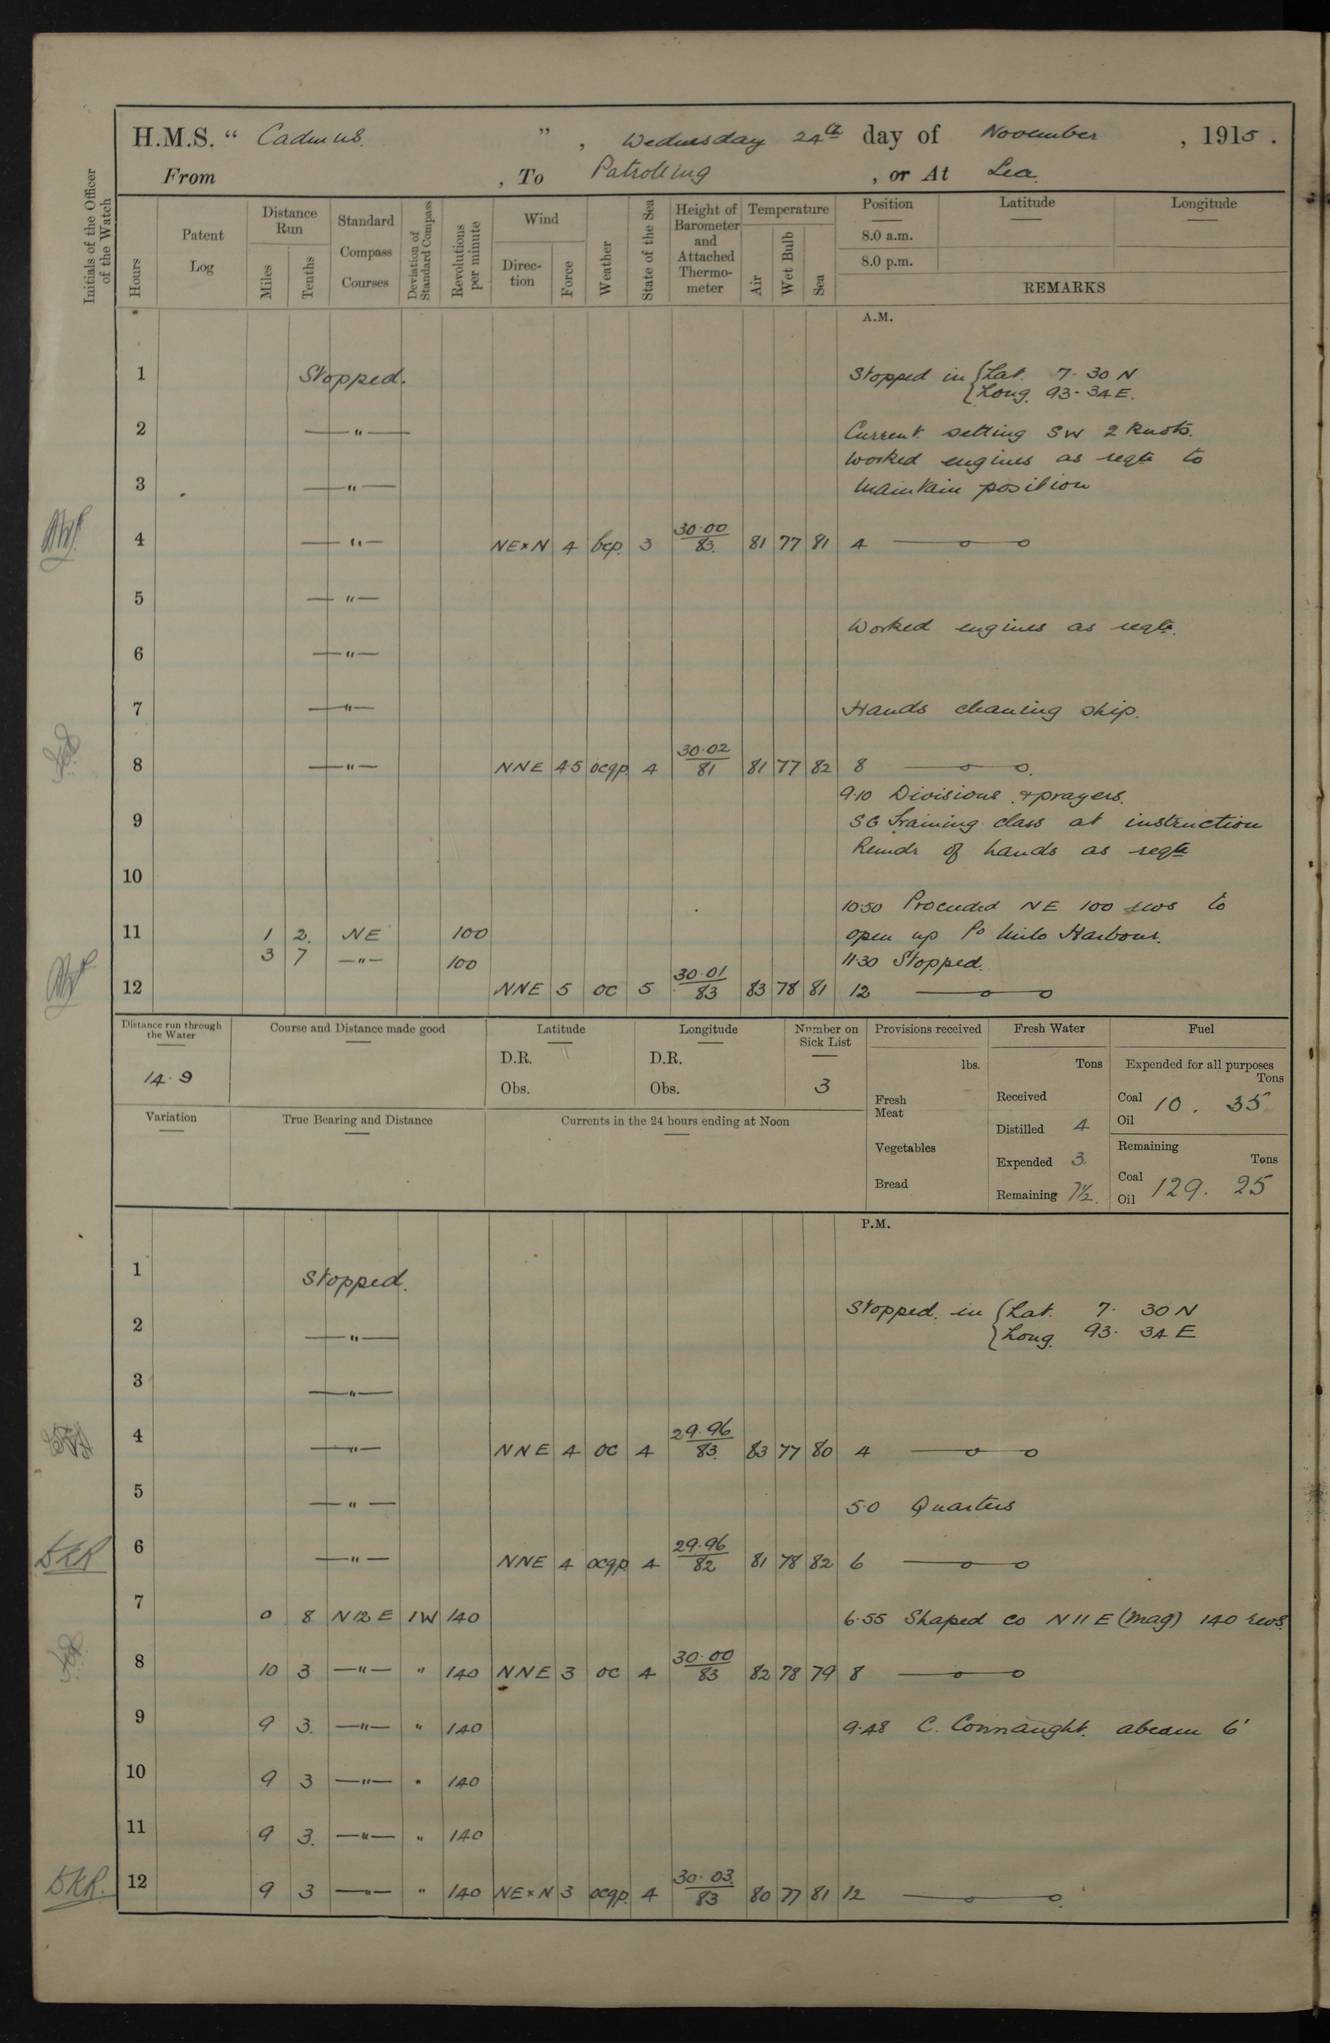 H.M.S. “ Cadmus ” , Wednesday 24th day of November , 1915 .
From , To Patrolling , or At Sea.
Initials of the Officer of the Watch
Hours
Patent Log
Distance Run
Miles
Tenths
Standard Compass Courses
Deviation of Standard Compass
Revolutions per minute
Wind
Direction
Force
Weather
State of the Sea
Height of Barometer and Attached Thermometer
Temperature
Air
Wet Bulb
Sea
Position
8.0 a.m.
8.0 p.m.
Latitude
Longitude
REMARKS
A.M.
1 Stopped. Stopped in { Lat. 7. 30 N
{ Long. 93. 34 E.
2 —"— Current setting SW 2 knots.
Worked engines as reqte to
3 —"— maintain position
4 —"— NE×N 4 bcp. 3 30.00/83. 81 77 81 4
5 —"—
Worked engines as reqte.
6 —"—
7 —"— Hands cleaning ship.
8 —"— NNE 4.5 ocqp 4 30.02/81 81 77 82 8
9.10 Divisions & prayers.
9 SG Training class at instruction
Remdr of hands as reqte
10
10.50 Proceeded NE 100 revs to
11 1 2. NE 100 open up Po Milo Harbour.
3 7 —"— 100 11.30 Stopped.
12 NNE 5 oc 5 30.01/83 83 78 81 12
Distance run through the Water
14.9
Course and Distance made good
Latitude
D.R.
Obs.
Longitude
D.R.
Obs.
Number on Sick List
3
Provisions received
lbs.
Fresh Meat
Vegetables
Bread
Fresh Water
Tons
Received
Distilled 4
Expended 3.
Remaining 7½.
Fuel
Expended for all purposes
Tons
Coal 10. 35
Oil
Remaining
Tons
Coal 129. 25
Oil
Variation
True Bearing and Distance
Currents in the 24 hours ending at Noon
P.M.
1 Stopped.
Stopped. in { Lat. 7. 30 N
2 —"— { Long. 93. 34 E
3 —"—
4 —"— NNE 4 oc 4 29.96/83. 83 77 80 4
5 —"— 5.0 Quarters
DKR 6 —"— NNE 4 ocqp 4 29.96/82 81 78 82 6
7 0 8 N12E 1W 140 6.55 Shaped co N11E (Mag) 140 revs.
8 10 3 —"— " 140 NNE 3 oc 4 30.00/83 82 78 79 8
9 9 3. —"— " 140 9.48 C. Connaught. abeam 6'
10 9 3 —"— " 140
11 9 3. —"— " 140
DKR. 12 9 3 —"— " 140 NE×N 3 ocqp. 4 30.03./83 80 77 81 12